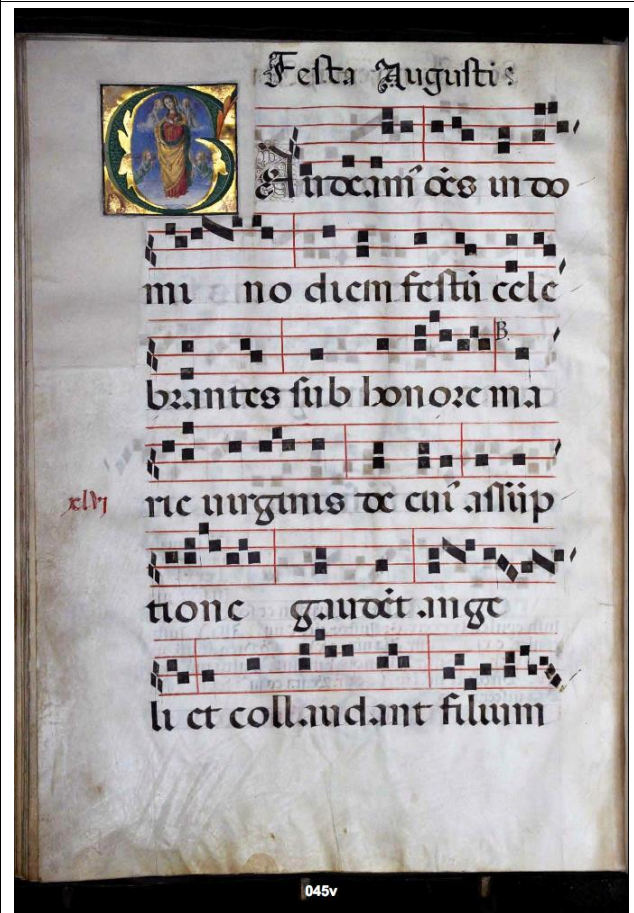 Festa Augusti:
GAudeam᾽ oēs in do
mi no diem festū cele
B.
brantes sub honore ma
xlvi
rie uirginis de cui᾽ assūp
tione gaudēt ange
li et collaudant filium
045v